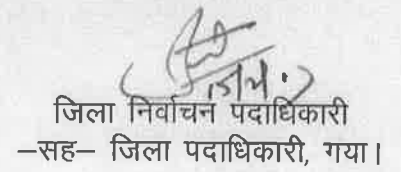 जिला निर्वाचन पदाधिकारी
–सह– जिला पदाधिकारी, गया।